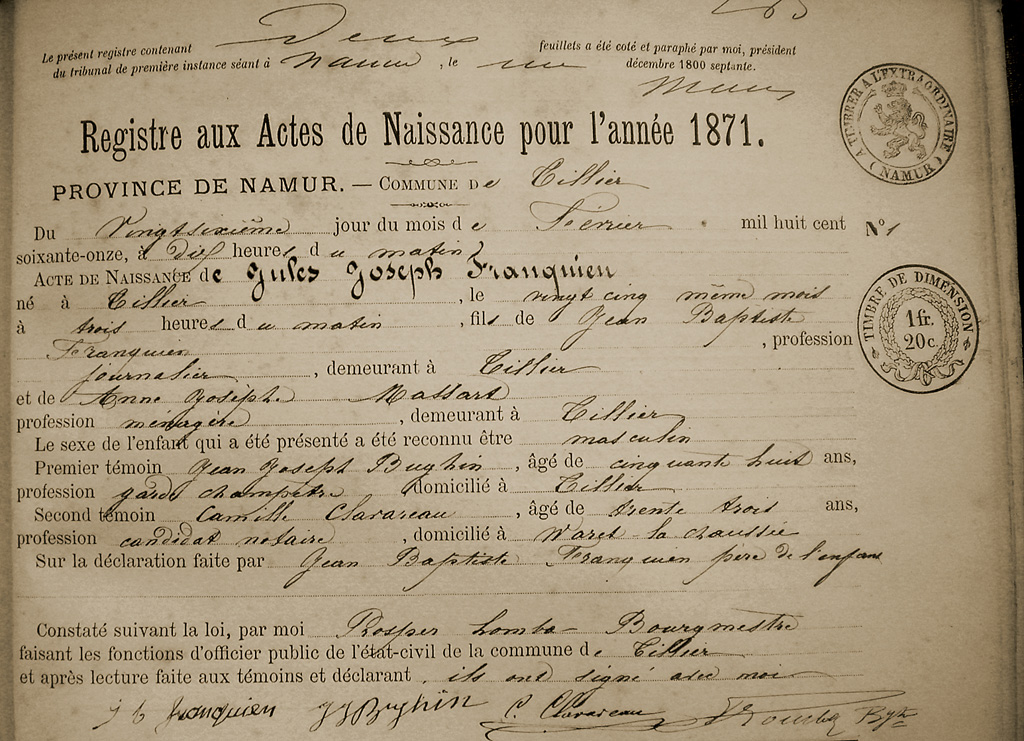 Le présent registre contenant Deux feuillets a été coté et paraphé par moi, président
du tribunal de première instance séant à Namur, le décembre 1800 septante.
Registre aux Actes de Naissance pour l'année 1871.
PROVINCE DE NAMUR. — COMMUNE De Tillier
Du Vingtsixième jour du mois de Février mil huit cent N° 1
soixante-onze, à dix heures du matin
ACTE DE NAISSANCE de Jules Joseph Franquien
né à Tillier, le vingt cinq même mois
à trois heures du matin, fils de Jean Baptiste
Franquien, profession
journalier, demeurant à Tillier
et de Anne Josèphe Massart
profession ménagère, demeurant à Tillier
Le sexe de l'enfant qui a été présenté a été reconnu être masculin
Premier témoin Jean Joseph Bughin, âgé de cinquante huit ans,
profession garde champêtre domicilié à Tillier
Second témoin Camille Clavareau, âgé de trente trois ans,
profession candidat notaire, domicilié à Waret la chaussée
Sur la déclaration faite par Jean Baptiste Franquien père de l'enfant
Constaté suivant la loi, par moi Prosper Lomba Bourgmestre
faisant les fonctions d'officier public de l'état-civil de la commune de Tillier
et après lecture faite aux témoins et déclarant, ils ont signé avec moi
J b franquien JJBughin C. Clavareau
A TIMBRER A L'EXTRAORDINAIRE
(NAMUR)
TIMBRE DE DIMENSION
1 fr.
20c.